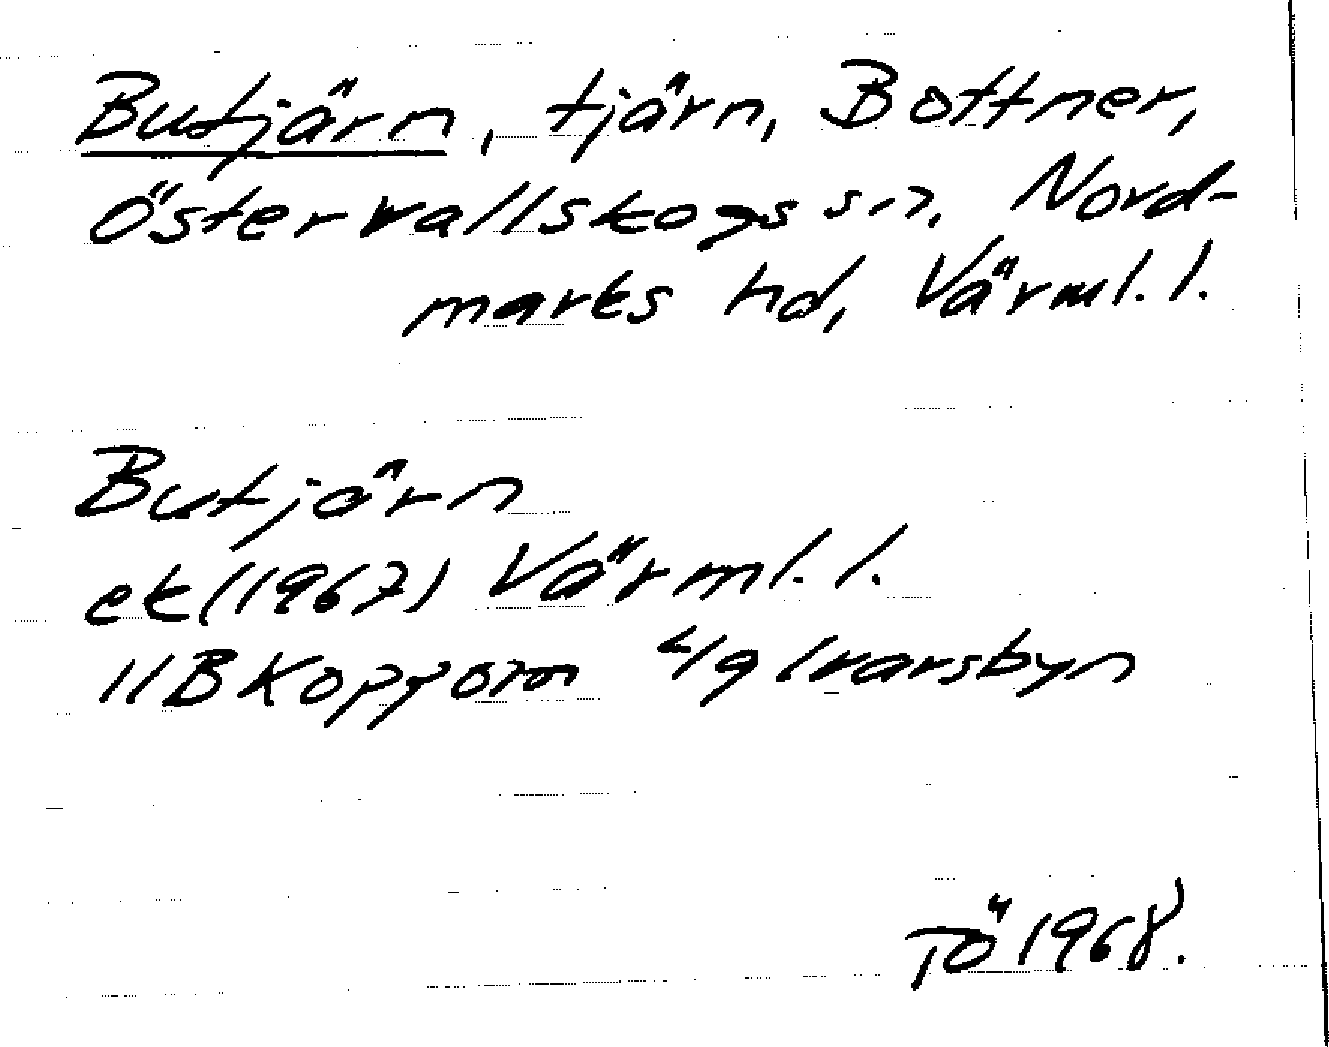 Butjärn, tjärn, Bottner,
Östervallskogs sn, Nord-
marks hd, Värml. l.
Butjärn
ek (1967) Värml. l.
11B Koppom 4/g Ivarsbyn
TÖ 1968.